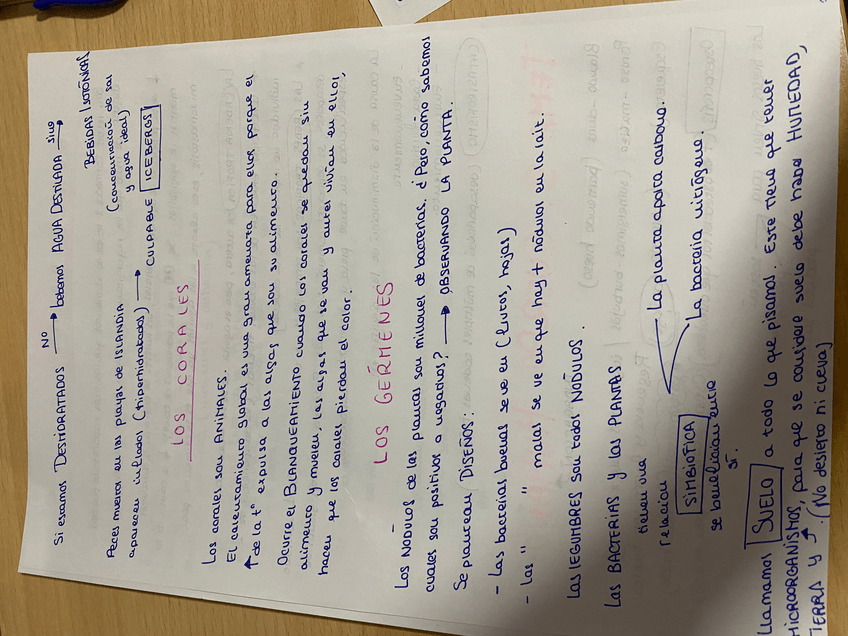 Si estamos DESHIDRATADOS NO → bebemos AGUA DESTILADA sino →
BEBIDAS ISOTÓNICAS
(concentración de sal
y agua ideal)
Peces muertos en las playas de ISLANDIA
aparecen inflados (hiperhidratados) → CULPABLE ICEBERGS
LOS CORALES
Los corales son ANIMALES.
El calentamiento global es una gran amenaza para ellos porque el
↑ de la tº expulsa a las algas que son su alimento.
Ocurre el BLANQUEAMIENTO cuando los corales se quedan sin
alimento y mueren, las algas que se van y antes vivían en ellos,
hacen que los corales pierdan el color.
LOS GÉRMENES
Los NÓDULOS de las plantas son millones de bacterias. ¿Pero, cómo sabemos
cuales son positivos o negativos? → OBSERVANDO LA PLANTA.
Se plantean DISEÑOS:
- Las bacterias buenas se ve en (frutos, hojas)
- Las " malas se ve en que hay + nódulos en la raíz.
Las LEGUMBRES son todos NÓDULOS.
Las BACTERIAS y las PLANTAS
tienen una
relación
SIMBIOTICA
se benefician entre
sí.
La planta aporta carbono.
La bacteria nitrógeno.
Llamamos SUELO a todo lo que pisamos. Este tiene que tener
MICROORGANISMOS, para que se considere suelo debe haber HUMEDAD,
TIERRA y ↑. (No desierto ni cueva)